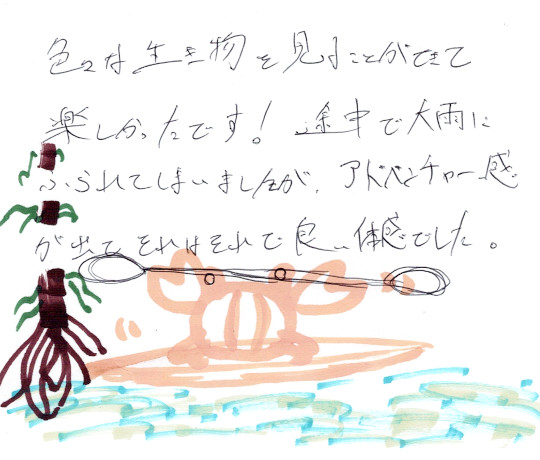 色々な生き物を見ることができて
楽しかったです！途中で大雨に
ふられてしまいましたが、アドベンチャー感
が出てそれはそれで良い体感でした。